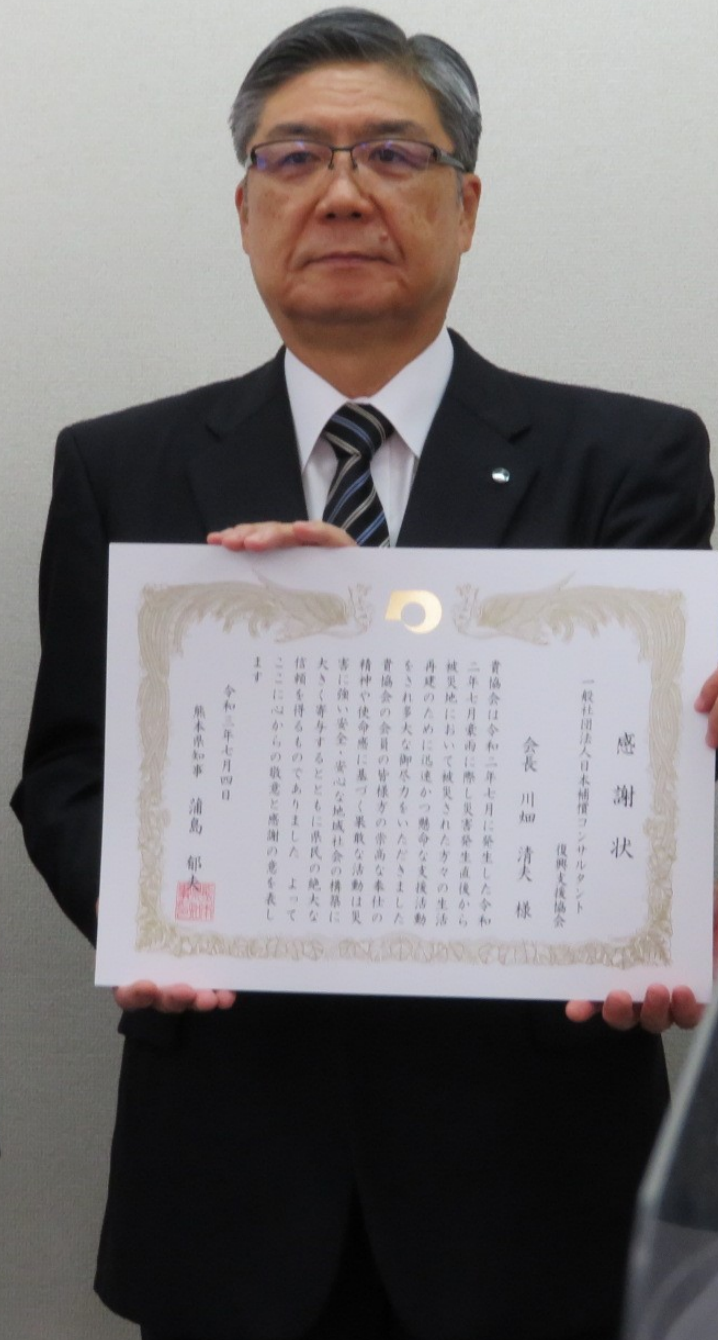 感謝状
一般社団法人日本補償コンサルタント
復興支援協会
会長 川畑 清夫 様
貴協会は令和二年七月に発生した令和
二年七月豪雨に際し災害発生直後から
被災地において被災された方々の生活
再建のために迅速かつ懸命な支援活動
をされ多大な御尽力をいただきました
貴協会の会員の皆様方の崇高な奉仕の
精神や使命感に基づく果敢な活動は災
害に強い安全・安心な地域社会の構築に
大きく寄与するとともに県民の絶大な
信頼を得るものでありました よって
ここに心からの敬意と感謝の意を表し
ます
令和三年七月四日
熊本県知事 蒲島 郁夫